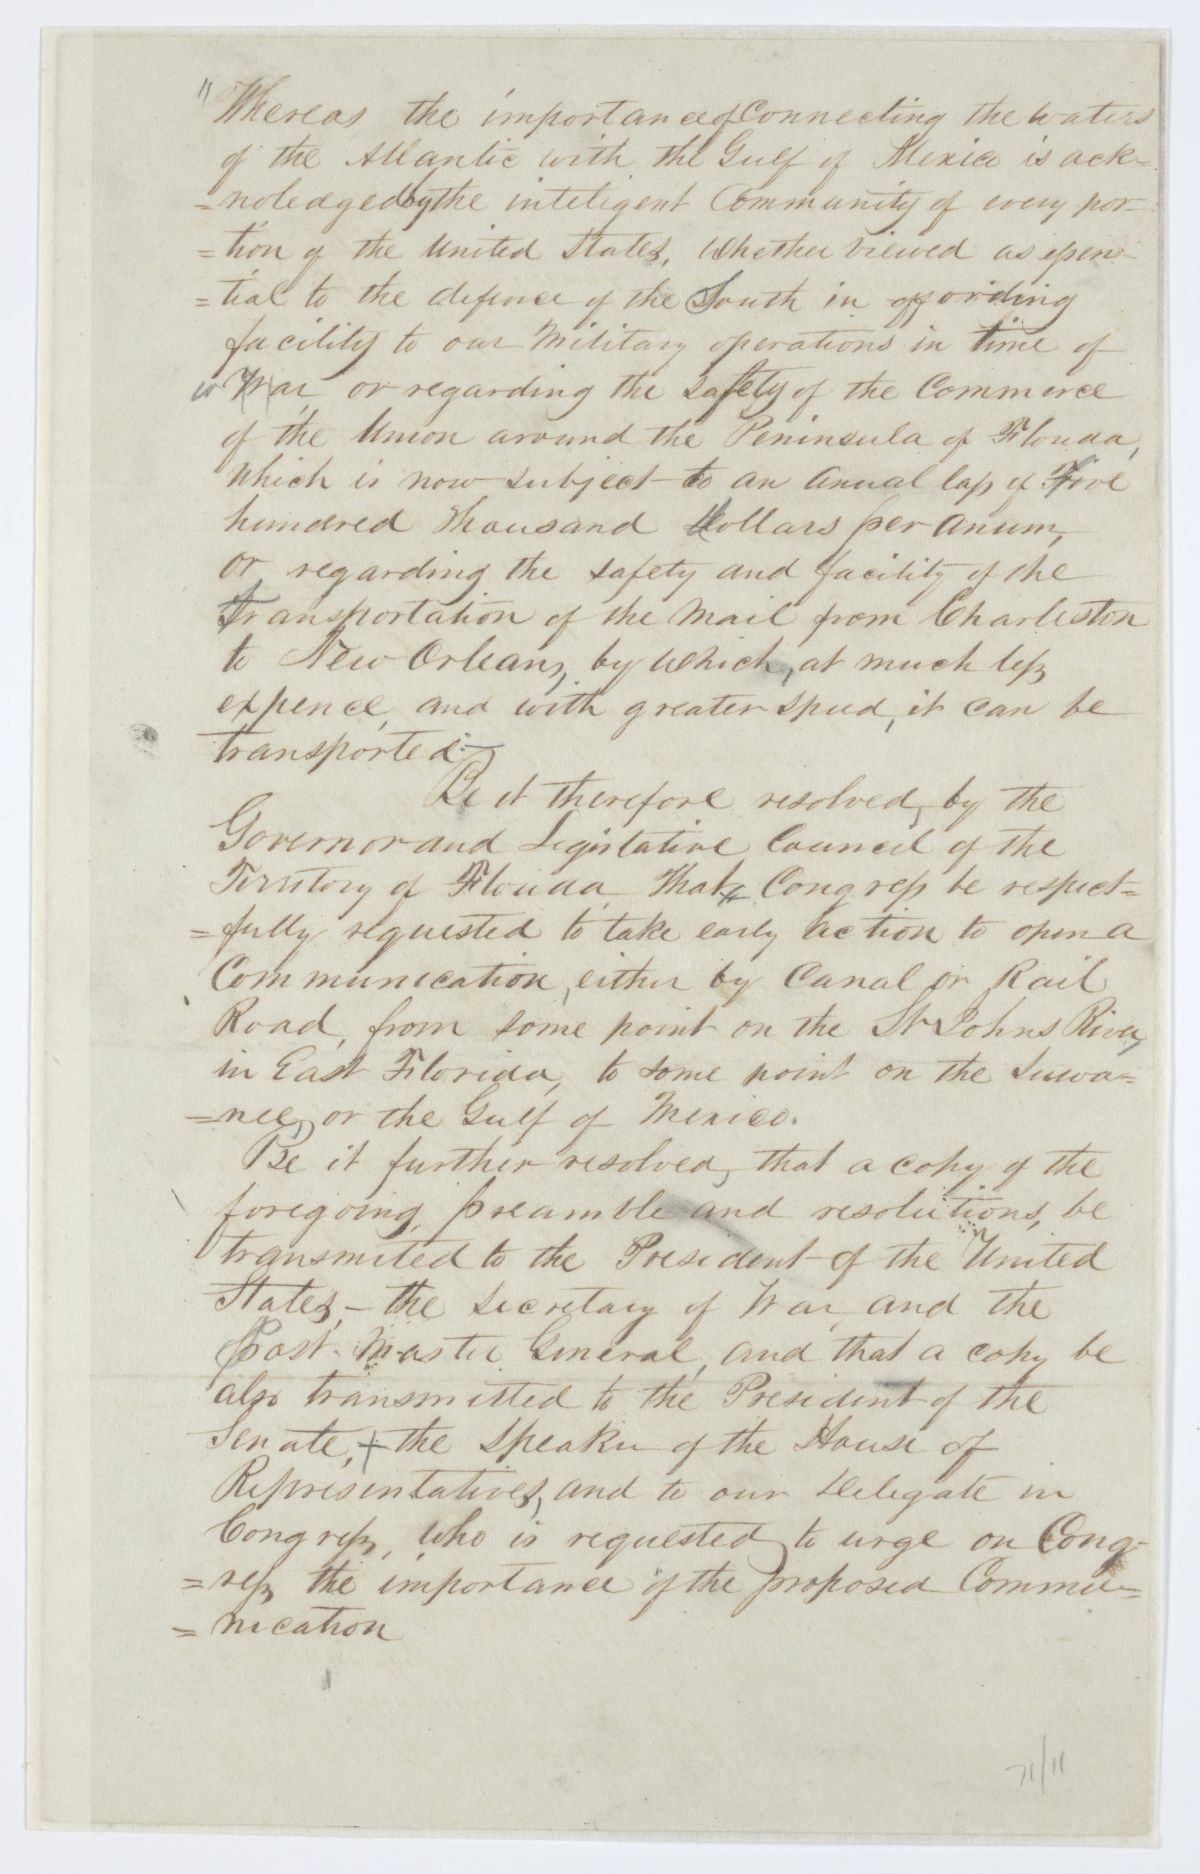 " Whereas the importance of Connecting the waters
of the Atlantic with the Gulf of Mexico is ack-
=noledged by the inteligent Community of every por-
=tion of the United States, Whether viewed as essen-
=tial to the defence of the South in affording
facility to our Military operations in time of
War or regarding the safety of the Commerce
of the Union around the Peninsula of Florida,
which is now subject to an anual loss of Five
hundred thousand dollars per anum,
or regarding the safety and facility of the
transportation of the mail from Charleston
to New Orleans, by which, at much less
expence, and with greater speed, it can be
transported:—
Be it therefore resolved, by the
Governor and Legistative Council of the
Territory of Florida That, Congress be respect=
=fully requested to take early action to open a
Communication, either by Canal or Rail
Road, from some point on the St Johns River,
in East Florida, to some point on the Suwa=
=nee, or the Gulf of Mexico.
Be it further resolved, that a copy of the
foregoing, preamble and resolutions, be
transmited to the President of the United
States, – the Secretary of War, and the
Post Master General, and that a copy be
also transmitted to the President of the
Senate, + the Speaker of the House of
Representatives, and to our Delegate in
Congress, who is requested to urge on Cong-
=ress, the importance of the proposed Commu=
=nication
71/11